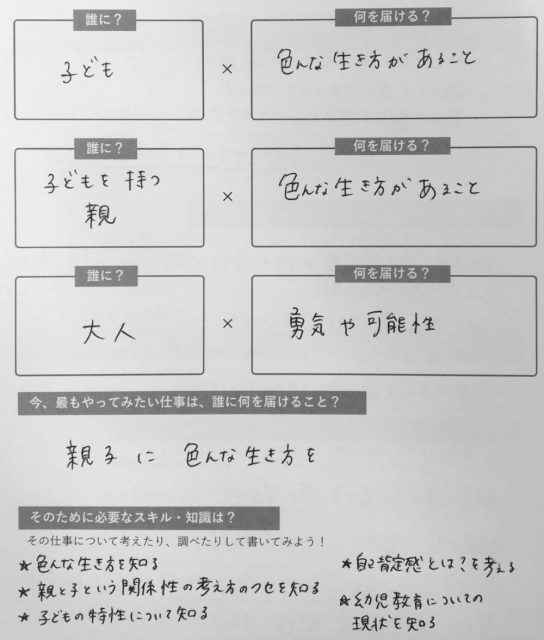 誰に？
何を届ける？
子ども
×
色んな生き方があること
誰に？
何を届ける？
子どもを持つ
親
×
色んな生き方があること
誰に？
何を届ける？
大人
×
勇気や可能性
今、最もやってみたい仕事は、誰に何を届けること？
親子に 色んな生き方を
そのために必要なスキル・知識は？
その仕事について考えたり、調べたりして書いてみよう！
★色んな生き方を知る
★親と子という関係性の考え方のクセを知る
★子どもの特性について知る
★自己肯定感とは？を考える
★幼児教育についての
現状を知る